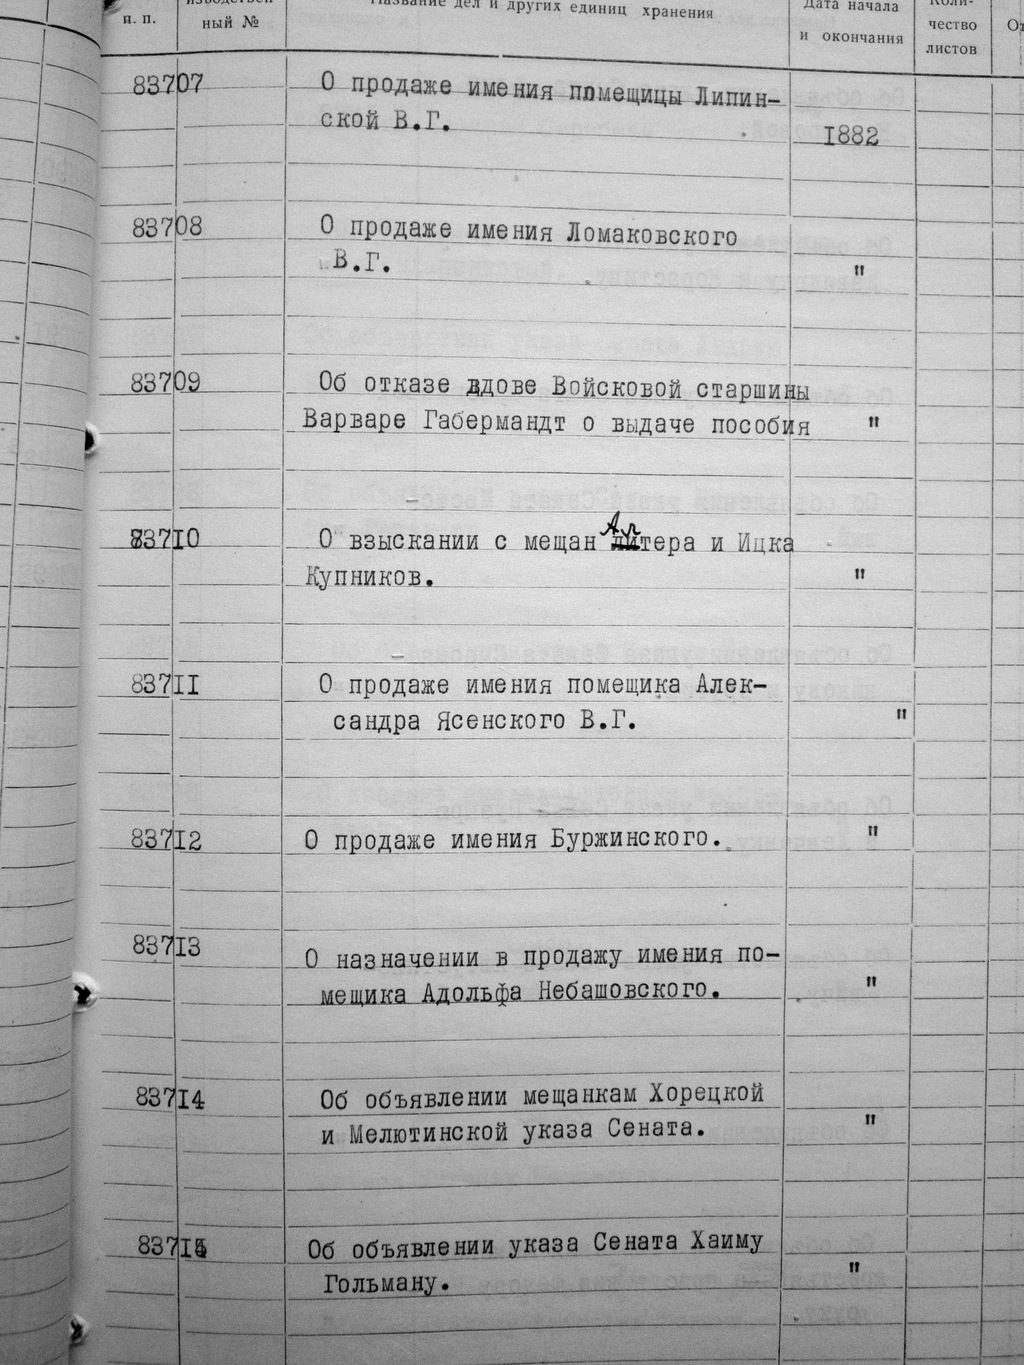 п. п.
ный №
Название дел и других единиц хранения
Дата начала
и окончания
Коли-
чество
листов
83707
О продаже имения помещицы Липин-
ской В.Г.
1882
83708
О продаже имения Ломаковского
В.Г.
"
83709
Об отказе вдове Войсковой старшины
Варваре Габермандт о выдаче пособия
"
83710
О взыскании с мещан Алтера и Ицка
Купников.
"
83711
О продаже имения помещика Алек-
сандра Ясенского В.Г.
"
83712
О продаже имения Буржинского.
"
83713
О назначении в продажу имения по-
мещика Адольфа Небашовского.
"
83714
Об объявлении мещанкам Хорецкой
и Мелютинской указа Сената.
"
83715
Об объявлении указа Сената Хаиму
Гольману.
"